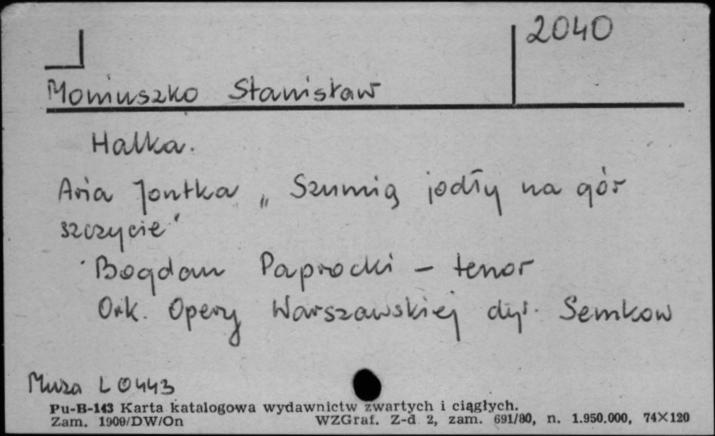 2040
Moniuszko Stanisław
Halka.
Aria Jontka „ Szumią jodły na gór
szczycie"
Bogdan Paprocki – tenor
Ork. Opery Warszawskiej dyr. Semkow
Muza L 0443
Pu-B-143 Karta katalogowa wydawnictw zwartych i ciągłych.
Zam. 1909/DW/On WZGraf. Z-d 2, zam. 691/80, n. 1.950.000, 74×120